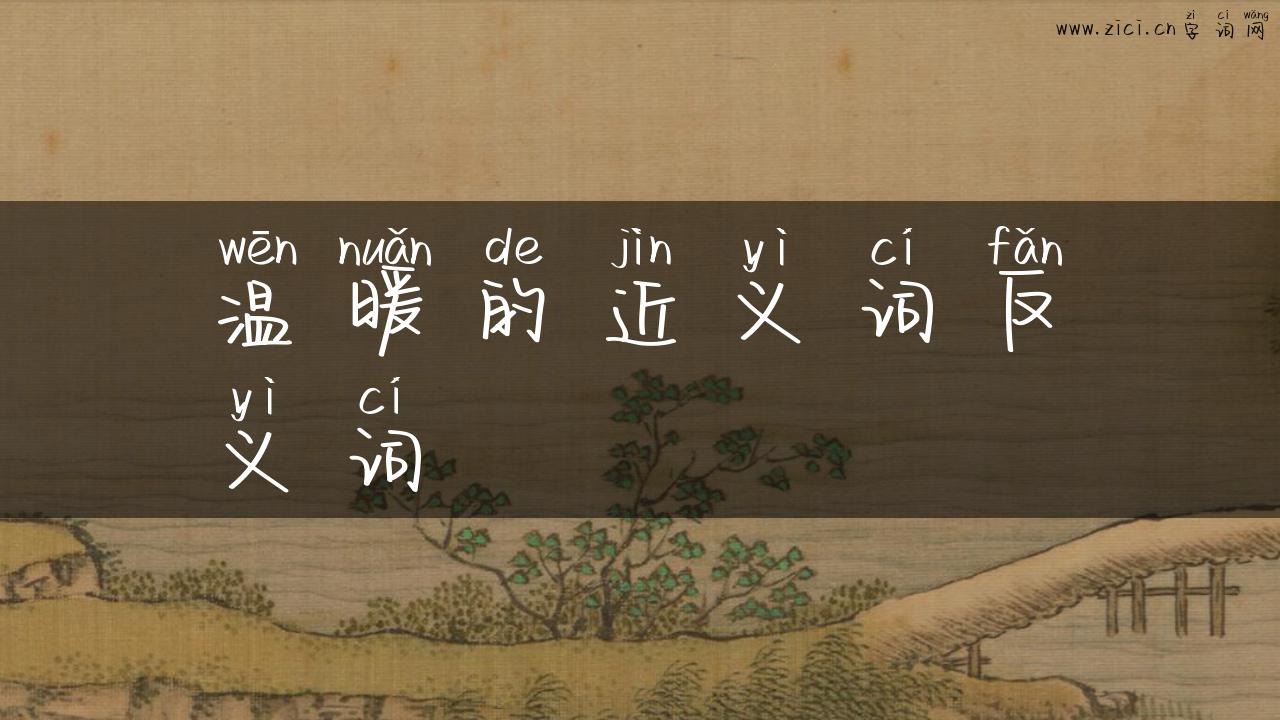 zì cí wǎng
www.zici.cn 字词网
wēn nuǎn de jìn yì cí fǎn
温暖的近义词反
yì cí
义词